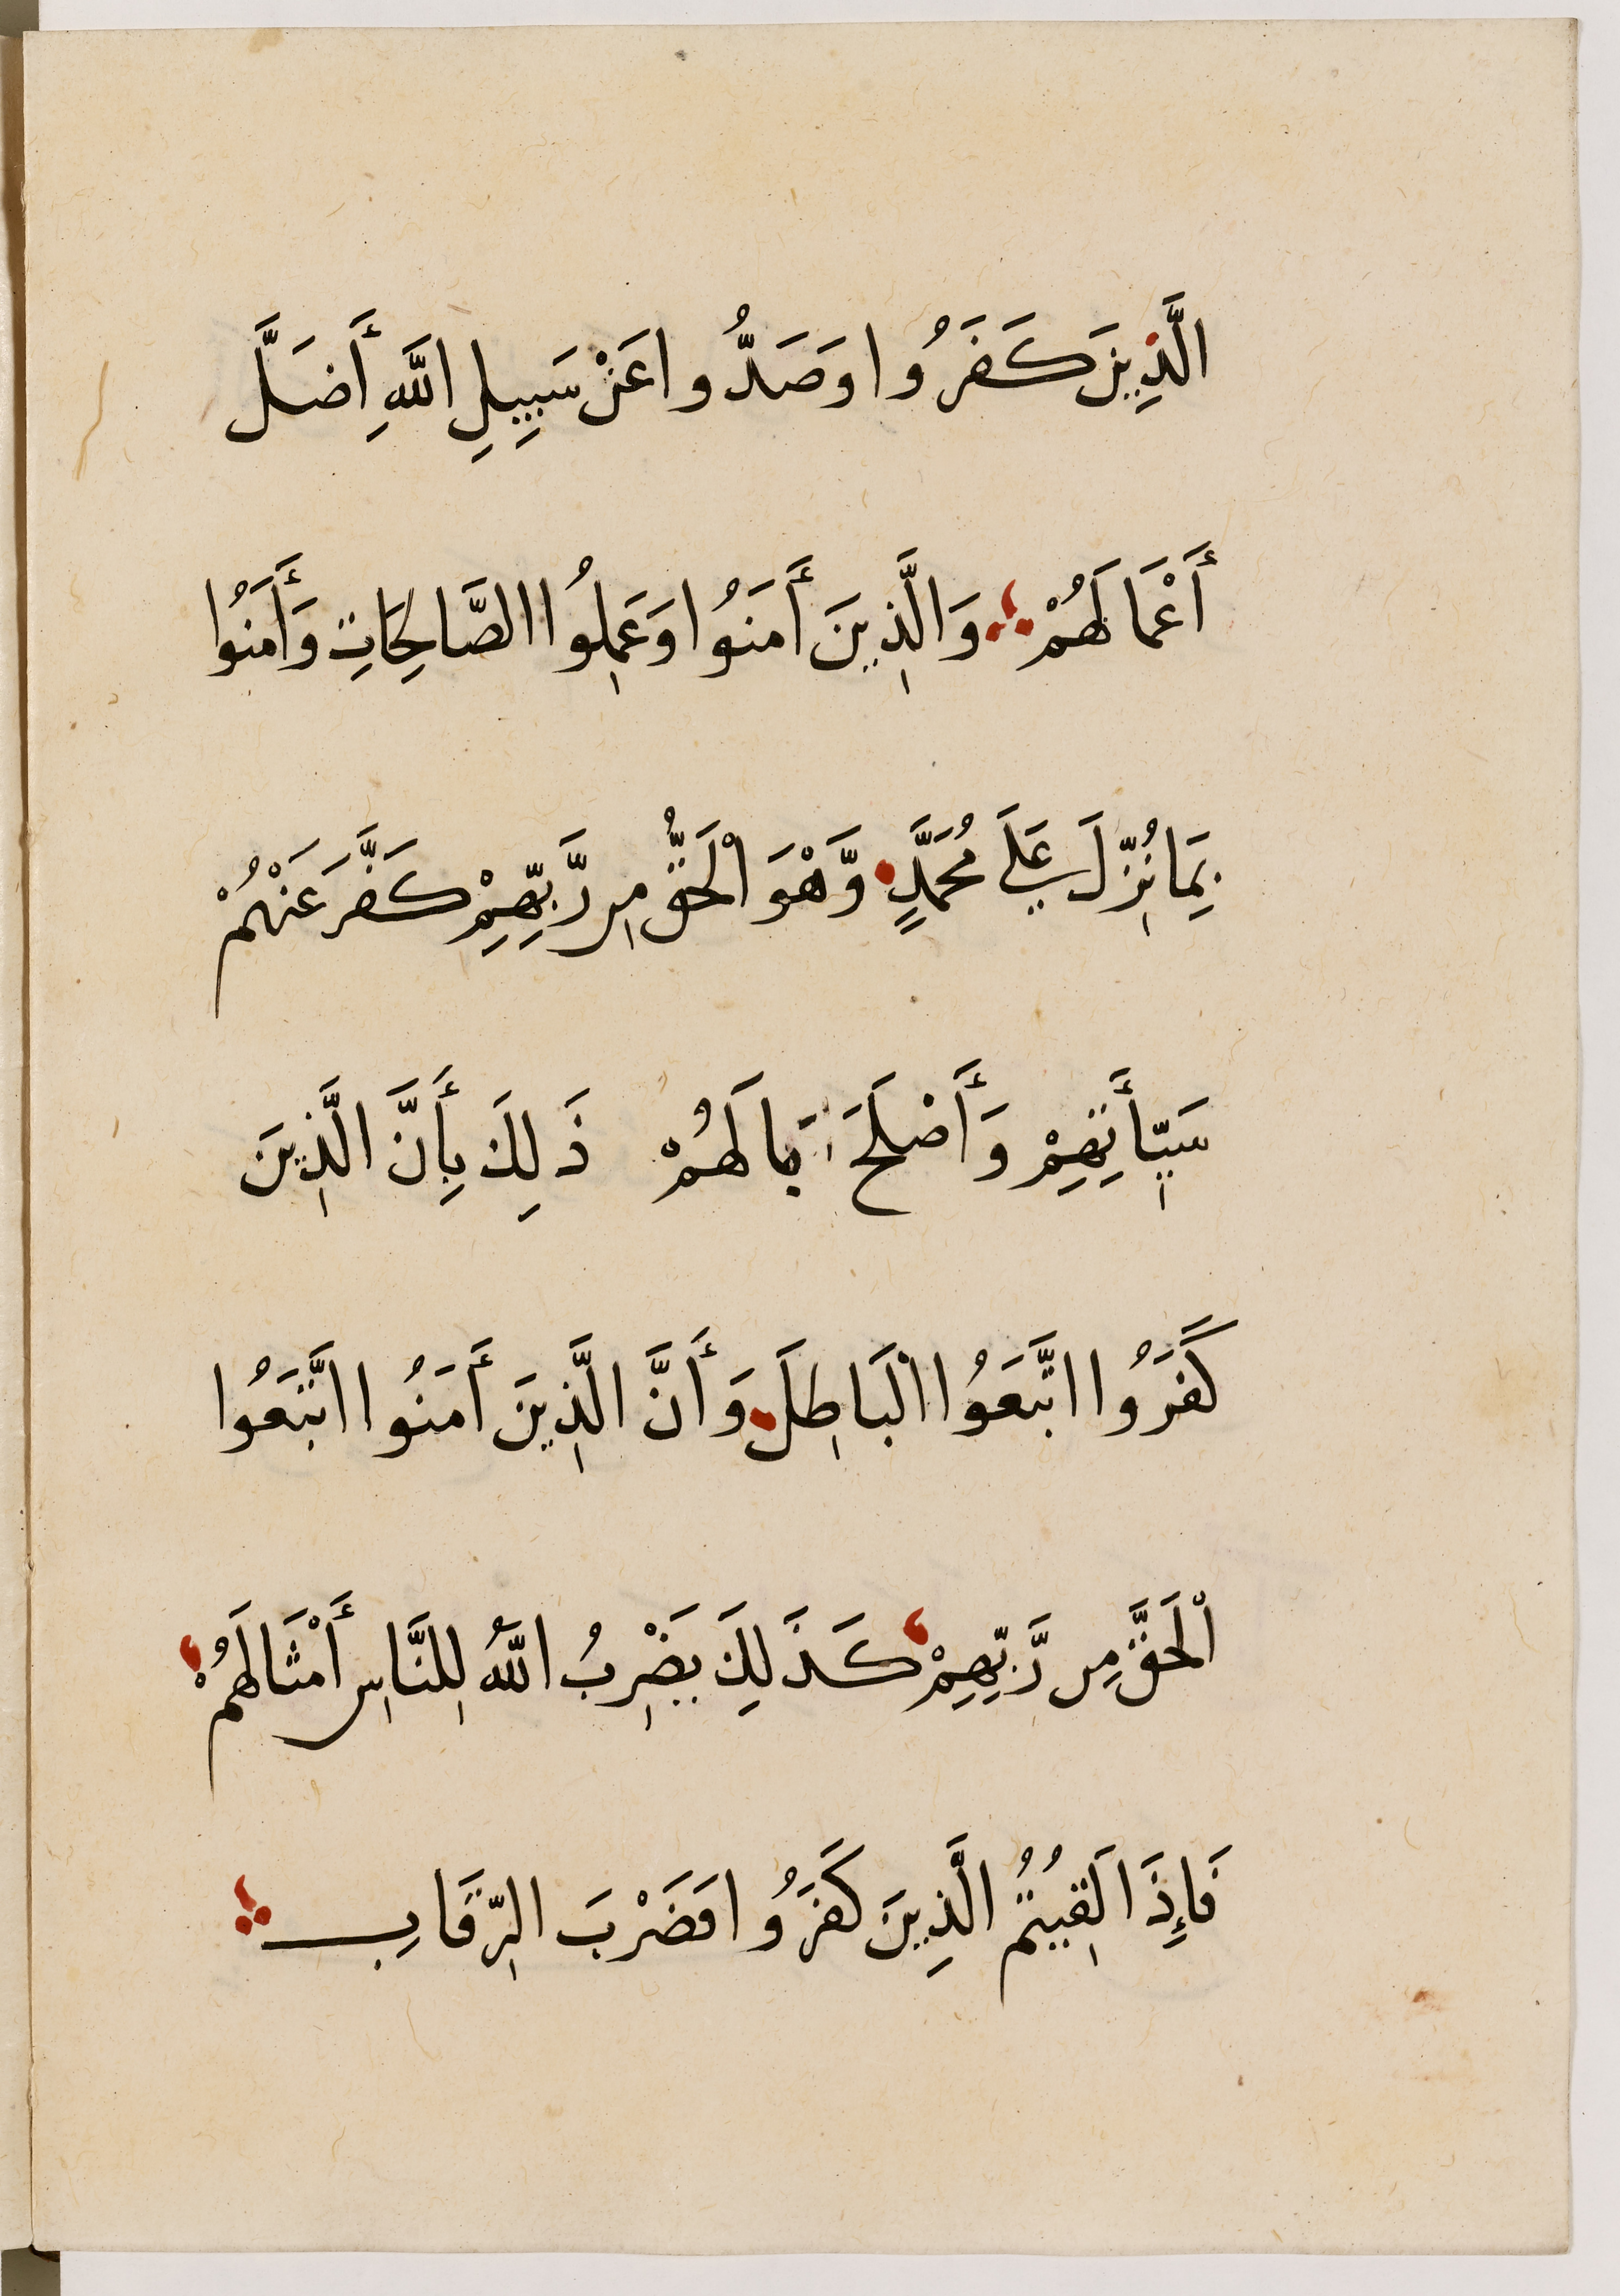 الَّذِينَ كَفَرُوا وَصَدُّوا عَنْ سَبِيلِ اللَّهِ أَضَلَّ
أَعْمَالَهُمْ ؞ وَالَّذِينَ أَمَنُوا وَعَمِلُوا الصَّالِحَاتِ وَأَمَنُوا
بِمَا نُزِّلَ عَلَى مُحَمَّدٍ وَّهْوَ الْحَقُّ مِن رَّبِّهِمْ كَفَّرَ عَنْهُمْ
سَيِّأَتِهِمْ وَأَصْلَحَ بَالَهُمْ ذَلِكَ بِأَنَّ الَّذِينَ
كَفَرُوا اتَّبَعُوا الْبَاطِلَ وَأَنَّ الَّذِينَ أَمَنُوا اتَّبَعُوا
الْحَقَّ مِن رَّبِّهِمْ كَذَلِكَ يَضْرِبُ اللَّهُ لِلنَّاسِ أَمْثَالَهُمْ
فَإِذَا لَقِيتُمُ الَّذِينَ كَفَرُوا فَضَرْبَ الرِّقَابِ ؞